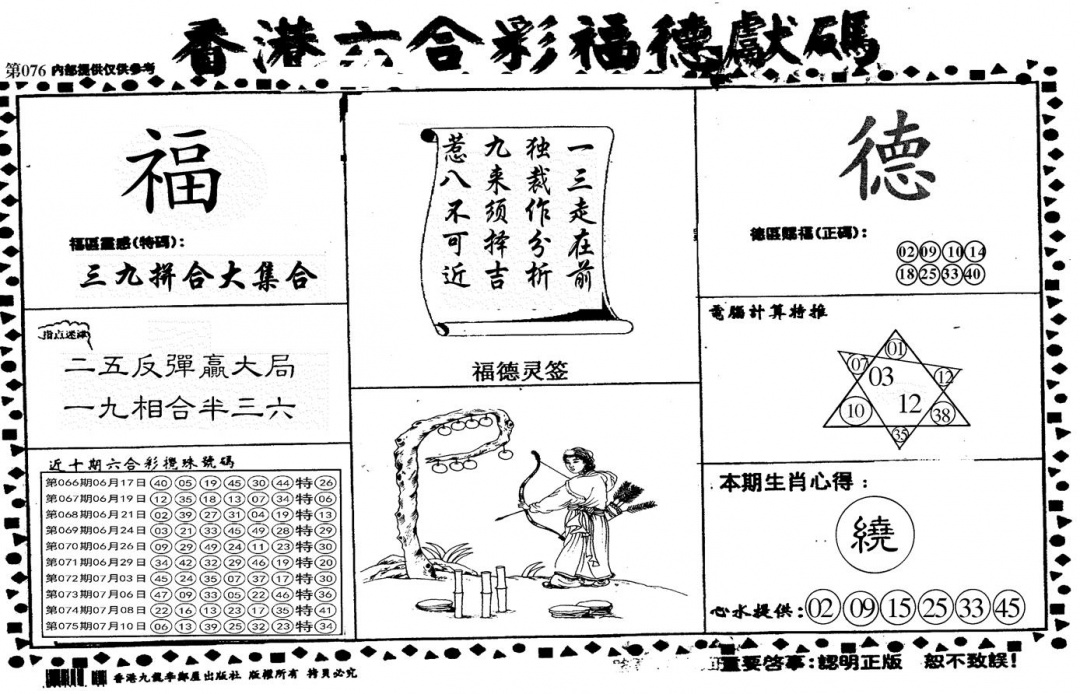 香港六合彩福德獻碼
第076 内部提供仅供参考
福
福區靈感(特碼):
三九拼合大集合
指点迷津
二五反彈贏大局
一九相合半三六
近十期六合彩攪珠號碼
第066期06月17日 40 05 19 45 30 44 特 26
第067期06月19日 12 35 18 13 07 34 特 06
第068期06月21日 02 39 27 31 04 19 特 13
第069期06月24日 03 21 33 45 49 28 特 29
第070期06月26日 09 29 49 24 11 23 特 30
第071期06月29日 34 42 32 29 46 19 特 20
第072期07月03日 45 24 35 07 37 17 特 30
第073期07月06日 47 09 33 05 22 46 特 36
第074期07月08日 22 16 13 23 17 35 特 41
第075期07月10日 06 13 39 25 32 23 特 34
一三走在前
独裁作分析
九来须择吉
惹八不可近
福德灵签
德
德區賜福(正碼):
02 09 10 14
18 25 33 40
電腦計算特推
01
07 03 12
10 12 38
35
本期生肖心得:
繞
心水提供:02 09 15 25 33 45
香港九龍李鄭屋出版社 版權所有 拷貝必究
重要啓事:認明正版 恕不致誤!